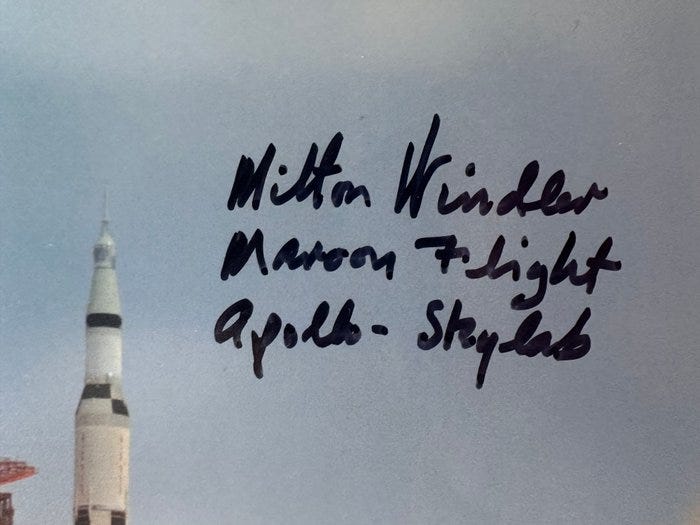 Milton Windler
Maroon Flight
Apollo - Skylab